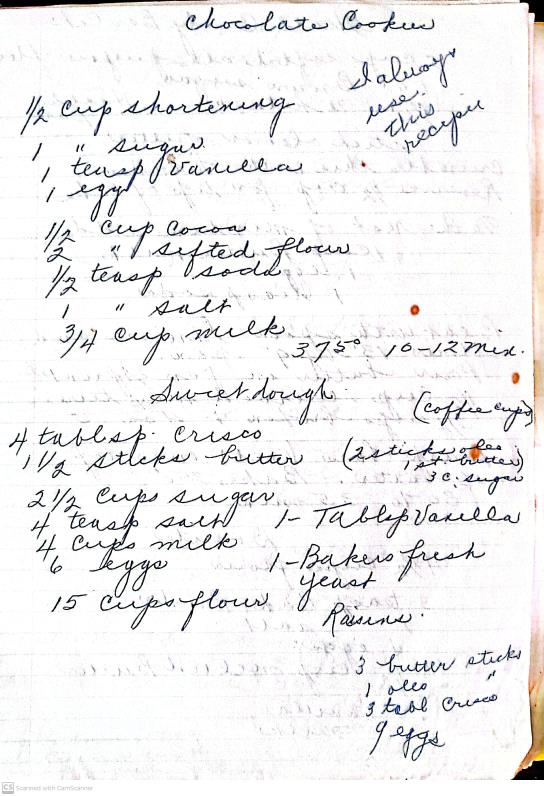 Chocolate Cookies
I always
use
this
recipie
1/2 cup shortening
1 " sugar
1 teasp Vanilla
1 egg
1/2 cup cocoa
2 " sifted flour
1/2 teasp soda
1 " salt
3/4 cup milk
375° 10-12 min.
Sweet dough
(coffee cups)
4 tablsp. Crisco
1 1/2 sticks butter (2 sticks oleo
1 st. butter)
3 c. sugar
2 1/2 cups sugar
4 teasp salt 1- Tablsp Vanilla
4 cups milk
6 eggs 1-Bakers fresh
yeast
15 cups flour
Raisins.
3 butter sticks
1 oleo "
3 tabl Crisco
9 eggs
CS Scanned with CamScanner